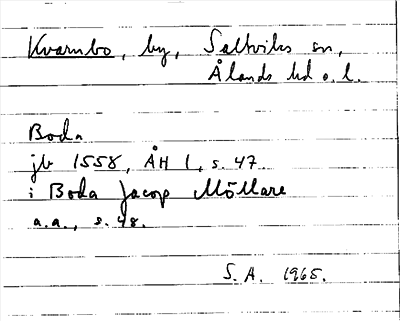 Kvarnbo, by, Saltviks sn,
Ålands hd o. l.
Boda
jb 1558, ÅH 1, s. 47
i Boda Jacop Möllare
a.a., s. 48.
S.A. 1965.